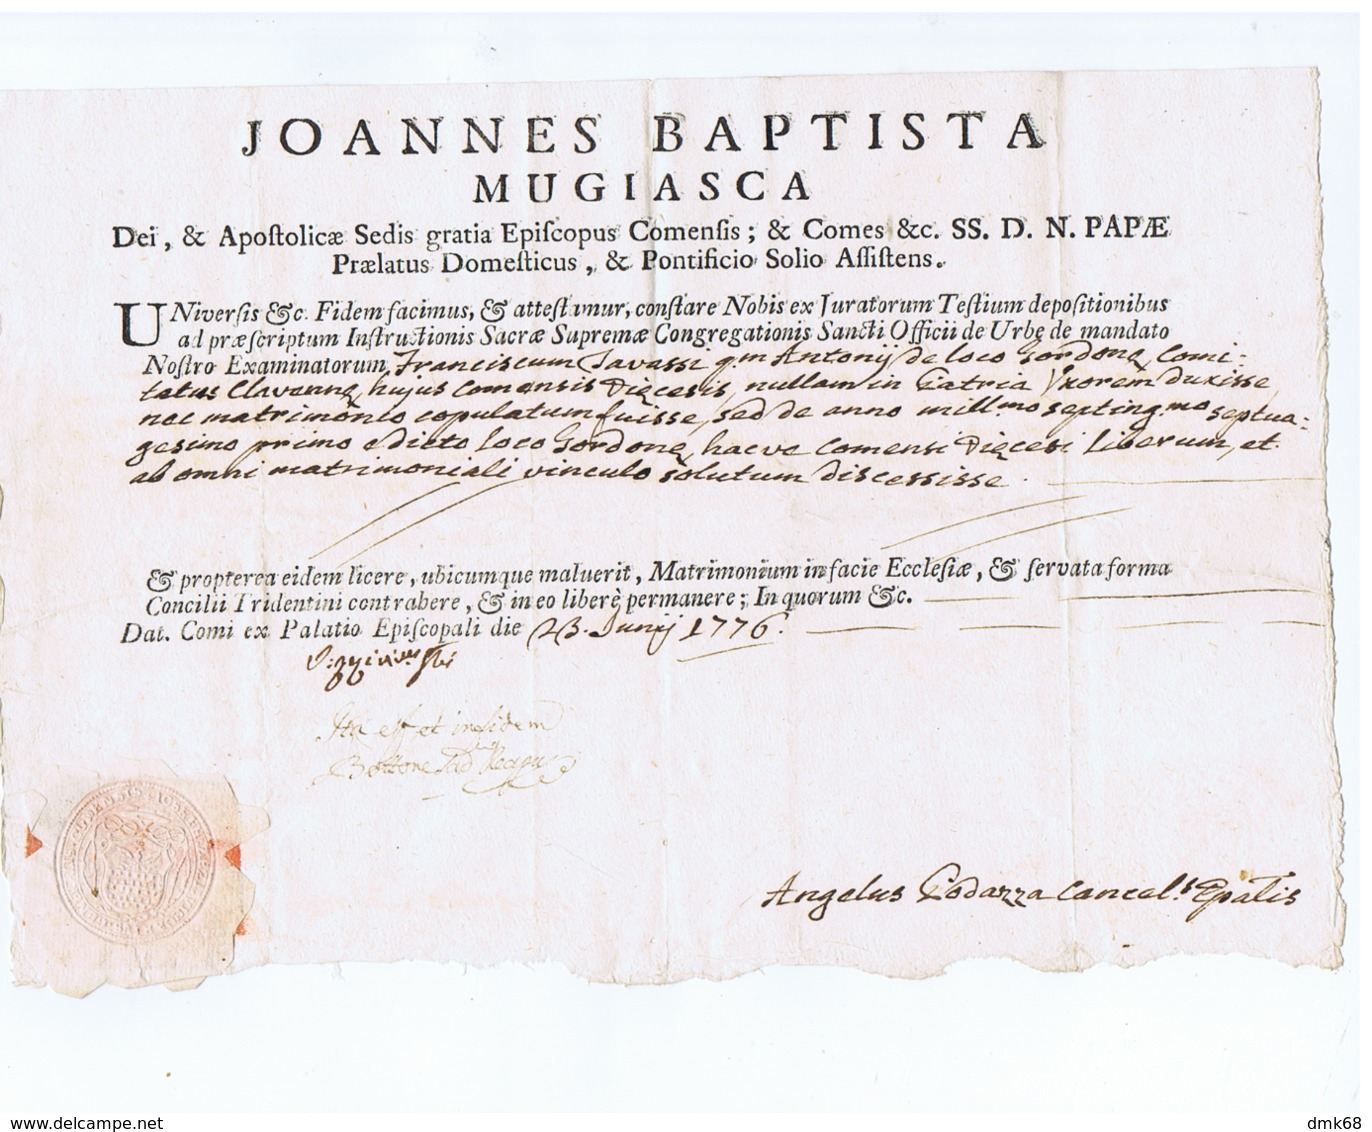 JOANNES BAPTISTA
MUGIASCA
Dei, & Apostolicæ Sedis gratia Epiſcopus Comenſis; & Comes &c. SS. D. N. PAPÆ
Prælatus Domeſticus, & Pontificio Solio Aſſiſtens.
UNiverſis &c. Fidem facimus, & atteſtamur, conſtare Nobis ex Juratorum Teſtium depoſitionibus
ad præſcriptum Inſtructionis Sacræ Supremæ Congregationis Sancti Officii de Urbe de mandato
Noſtro Examinatorum Franciscum Tavassi qm Antonij de loco Gordonę, Comi-
tatus Clavennę, hujus Comensis Dięcesis, nullam in Patria Uxorem duxisse,
nec matrimonio copulatum fuisse, sed de anno millmo septingmo septua-
gesimo primo edicto loco Gordonę, hacve Comensi Dięcesi Liberum, et
ab omni matrimoniali vinculo solutum discessisse.
& propterea eidem licere, ubicumque maluerit, Matrimonium in facie Eccleſiæ, & ſervata forma
Concilii Tridentini contrahere, & in eo liberè permanere; In quorum &c.
Dat. Comi ex Palatio Epiſcopali die 23. Junij 1776.
Ita est et in fidem
Angelus Podazza Cancel.s Epalis
delcampe.net
dmk68